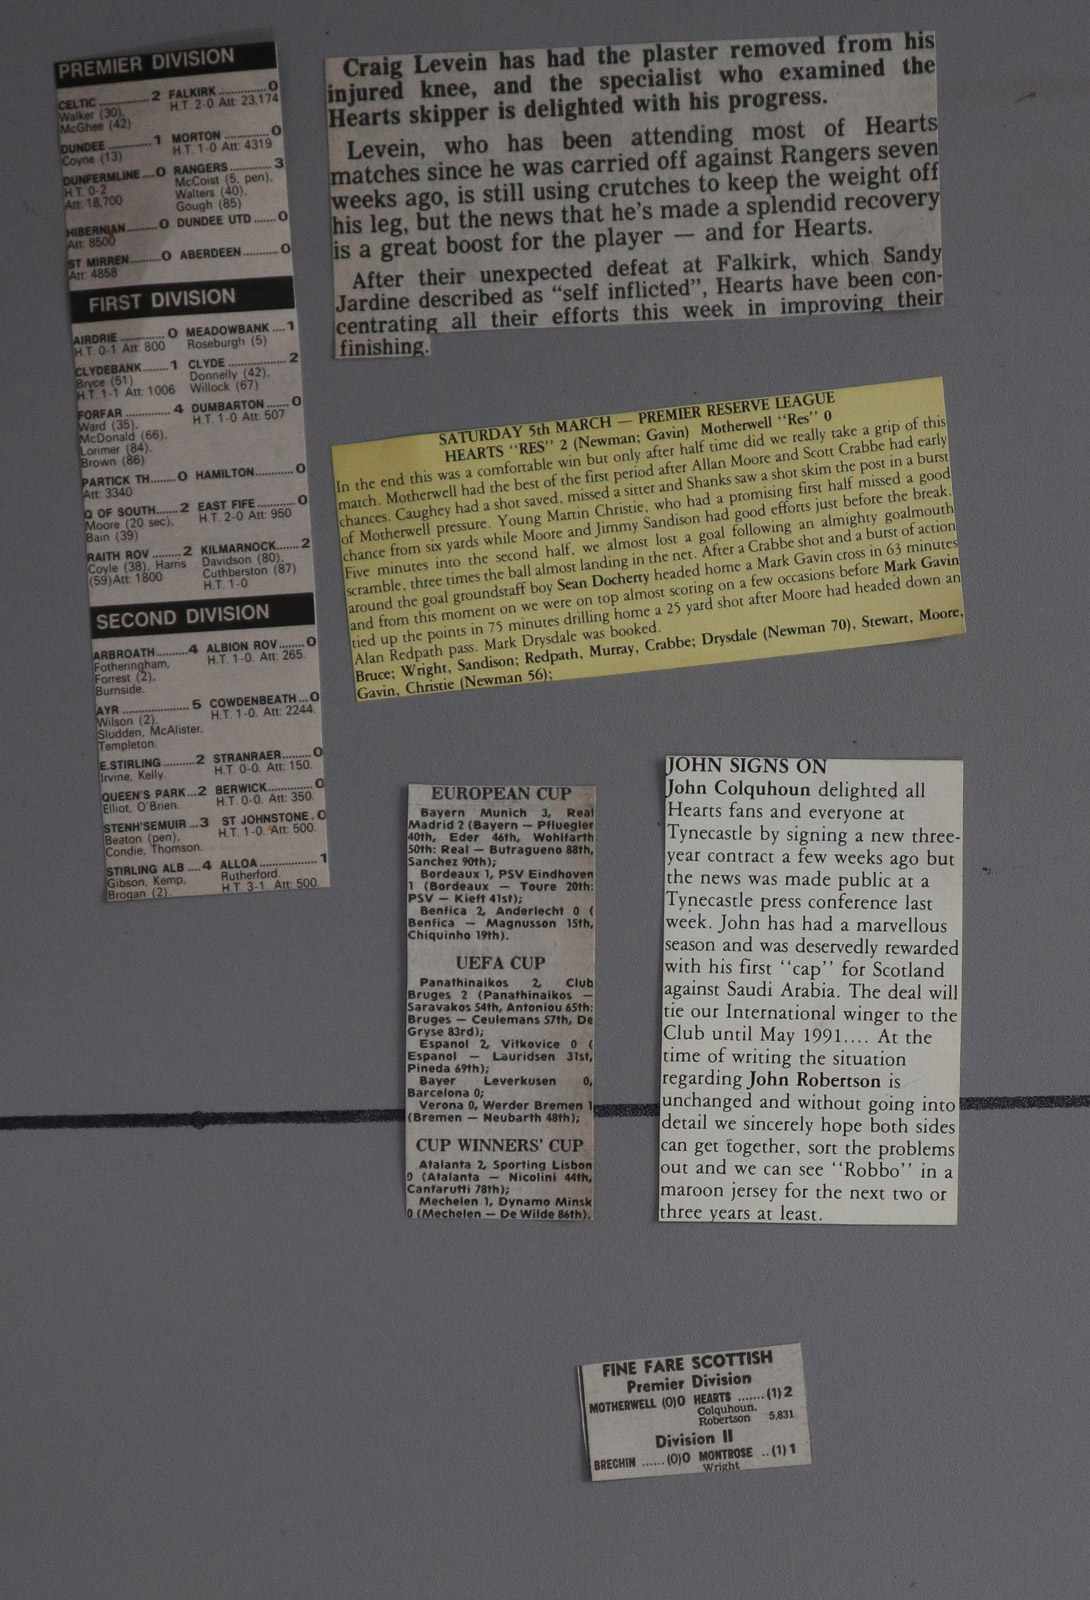 PREMIER DIVISION
CELTIC ............ 2 FALKIRK ............ 0
Walker (30), H.T. 2-0 Att: 23,174
McGhee (42)
DUNDEE ............ 1 MORTON ............ 0
Coyne (13) H.T. 1-0 Att: 4319
DUNFERMLINE .... 0 RANGERS ............ 3
H.T. 0-2 McCorst (5, pen),
Att: 18,700 Walters (40),
Gough (85)
HIBERNIAN ......... 0 DUNDEE UTD ...... 0
Att: 8500
ST MIRREN ......... 0 ABERDEEN ......... 0
Att: 4858
FIRST DIVISION
AIRDRIE ............ 0 MEADOWBANK .... 1
H.T. 0-1 Att: 800 Roseburgh (5)
CLYDEBANK ........ 1 CLYDE ............ 2
Bryce (51) Donnelly (42),
H.T. 1-1 Att: 1006 Willock (67)
FORFAR ............ 4 DUMBARTON ...... 0
Ward (35), H.T. 1-0 Att: 507
McDonald (66),
Lorimer (84),
Brown (86)
PARTICK TH ...... 0 HAMILTON ......... 0
Att: 3340
Q OF SOUTH ...... 2 EAST FIFE ......... 0
Moore (20 sec), H.T. 2-0 Att: 950
Bain (39)
RAITH ROV ........ 2 KILMARNOCK ...... 2
Coyle (38), Harris Davidson (80),
(59) Att: 1800 Cuthberston (87)
H.T. 1-0
SECOND DIVISION
ARBROATH ......... 4 ALBION ROV ...... 0
Fotheringham, H.T. 1-0. Att: 265.
Forrest (2),
Burnside.
AYR ............ 5 COWDENBEATH ... 0
Wilson (2), H.T. 1-0. Att: 2244.
Sludden, McAlister,
Templeton.
E.STIRLING ........ 2 STRANRAER ........ 0
Irvine, Kelly. H.T. 0-0. Att: 150.
QUEEN'S PARK ... 2 BERWICK ......... 0
Elliot, O'Brien. H.T. 0-0. Att: 350.
STENH'SEMUIR ... 3 ST JOHNSTONE . 0
Beaton (pen), H.T. 1-0. Att: 500.
Condie, Thomson.
STIRLING ALB .... 4 ALLOA ............ 1
Gibson, Kemp, Rutherford.
Brogan (2). H.T. 3-1. Att: 500.
Craig Levein has had the plaster removed from his
injured knee, and the specialist who examined the
Hearts skipper is delighted with his progress.
Levein, who has been attending most of Hearts
matches since he was carried off against Rangers seven
weeks ago, is still using crutches to keep the weight off
his leg, but the news that he's made a splendid recovery
is a great boost for the player — and for Hearts.
After their unexpected defeat at Falkirk, which Sandy
Jardine described as "self inflicted", Hearts have been con-
centrating all their efforts this week in improving their
finishing.
SATURDAY 5th MARCH — PREMIER RESERVE LEAGUE
HEARTS "RES" 2 (Newman; Gavin) Motherwell "Res" 0
In the end this was a comfortable win but only after half time did we really take a grip of this
match. Motherwell had the best of the first period after Allan Moore and Scott Crabbe had early
chances. Caughey had a shot saved, missed a sitter and Shanks saw a shot skim the post in a burst
of Motherwell pressure. Young Martin Christie, who had a promising first half missed a good
chance from six yards while Moore and Jimmy Sandison had good efforts just before the break.
Five minutes into the second half, we almost lost a goal following an almighty goalmouth
scramble, three times the ball almost landing in the net. After a Crabbe shot and a burst of action
around the goal groundstaff boy Sean Docherty headed home a Mark Gavin cross in 63 minutes
and from this moment on we were on top almost scoring on a few occasions before Mark Gavin
tied up the points in 75 minutes drilling home a 25 yard shot after Moore had headed down an
Alan Redpath pass. Mark Drysdale was booked.
Bruce; Wright, Sandison; Redpath, Murray, Crabbe; Drysdale (Newman 70), Stewart, Moore,
Gavin, Christie (Newman 56);
EUROPEAN CUP
Bayern Munich 3, Real
Madrid 2 (Bayern — Pfluegler
40th, Eder 46th, Wohlfarth
50th: Real — Butragueno 88th,
Sanchez 90th);
Bordeaux 1, PSV Eindhoven
1 (Bordeaux — Toure 20th:
PSV — Kieft 41st);
Benfica 2, Anderlecht 0 (
Benfica — Magnusson 15th,
Chiquinho 19th).
UEFA CUP
Panathinaikos 2, Club
Bruges 2 (Panathinaikos —
Saravakos 54th, Antoniou 65th:
Bruges — Ceulemans 57th, De
Gryse 83rd);
Espanol 2, Vitkovice 0 (
Espanol — Lauridsen 31st,
Pineda 69th);
Bayer Leverkusen 0,
Barcelona 0;
Verona 0, Werder Bremen 1
(Bremen — Neubarth 48th);
CUP WINNERS' CUP
Atalanta 2, Sporting Lisbon
0 (Atalanta — Nicolini 44th,
Cantarutti 78th);
Mechelen 1, Dynamo Minsk
0 (Mechelen — De Wilde 86th).
JOHN SIGNS ON
John Colquhoun delighted all
Hearts fans and everyone at
Tynecastle by signing a new three-
year contract a few weeks ago but
the news was made public at a
Tynecastle press conference last
week. John has had a marvellous
season and was deservedly rewarded
with his first "cap" for Scotland
against Saudi Arabia. The deal will
tie our International winger to the
Club until May 1991.... At the
time of writing the situation
regarding John Robertson is
unchanged and without going into
detail we sincerely hope both sides
can get together, sort the problems
out and we can see "Robbo" in a
maroon jersey for the next two or
three years at least.
FINE FARE SCOTTISH
Premier Division
MOTHERWELL (0)0 HEARTS ....... (1)2
Colquhoun.
Robertson 5,831
Division II
BRECHIN ...... (0)0 MONTROSE .. (1)1
Wright